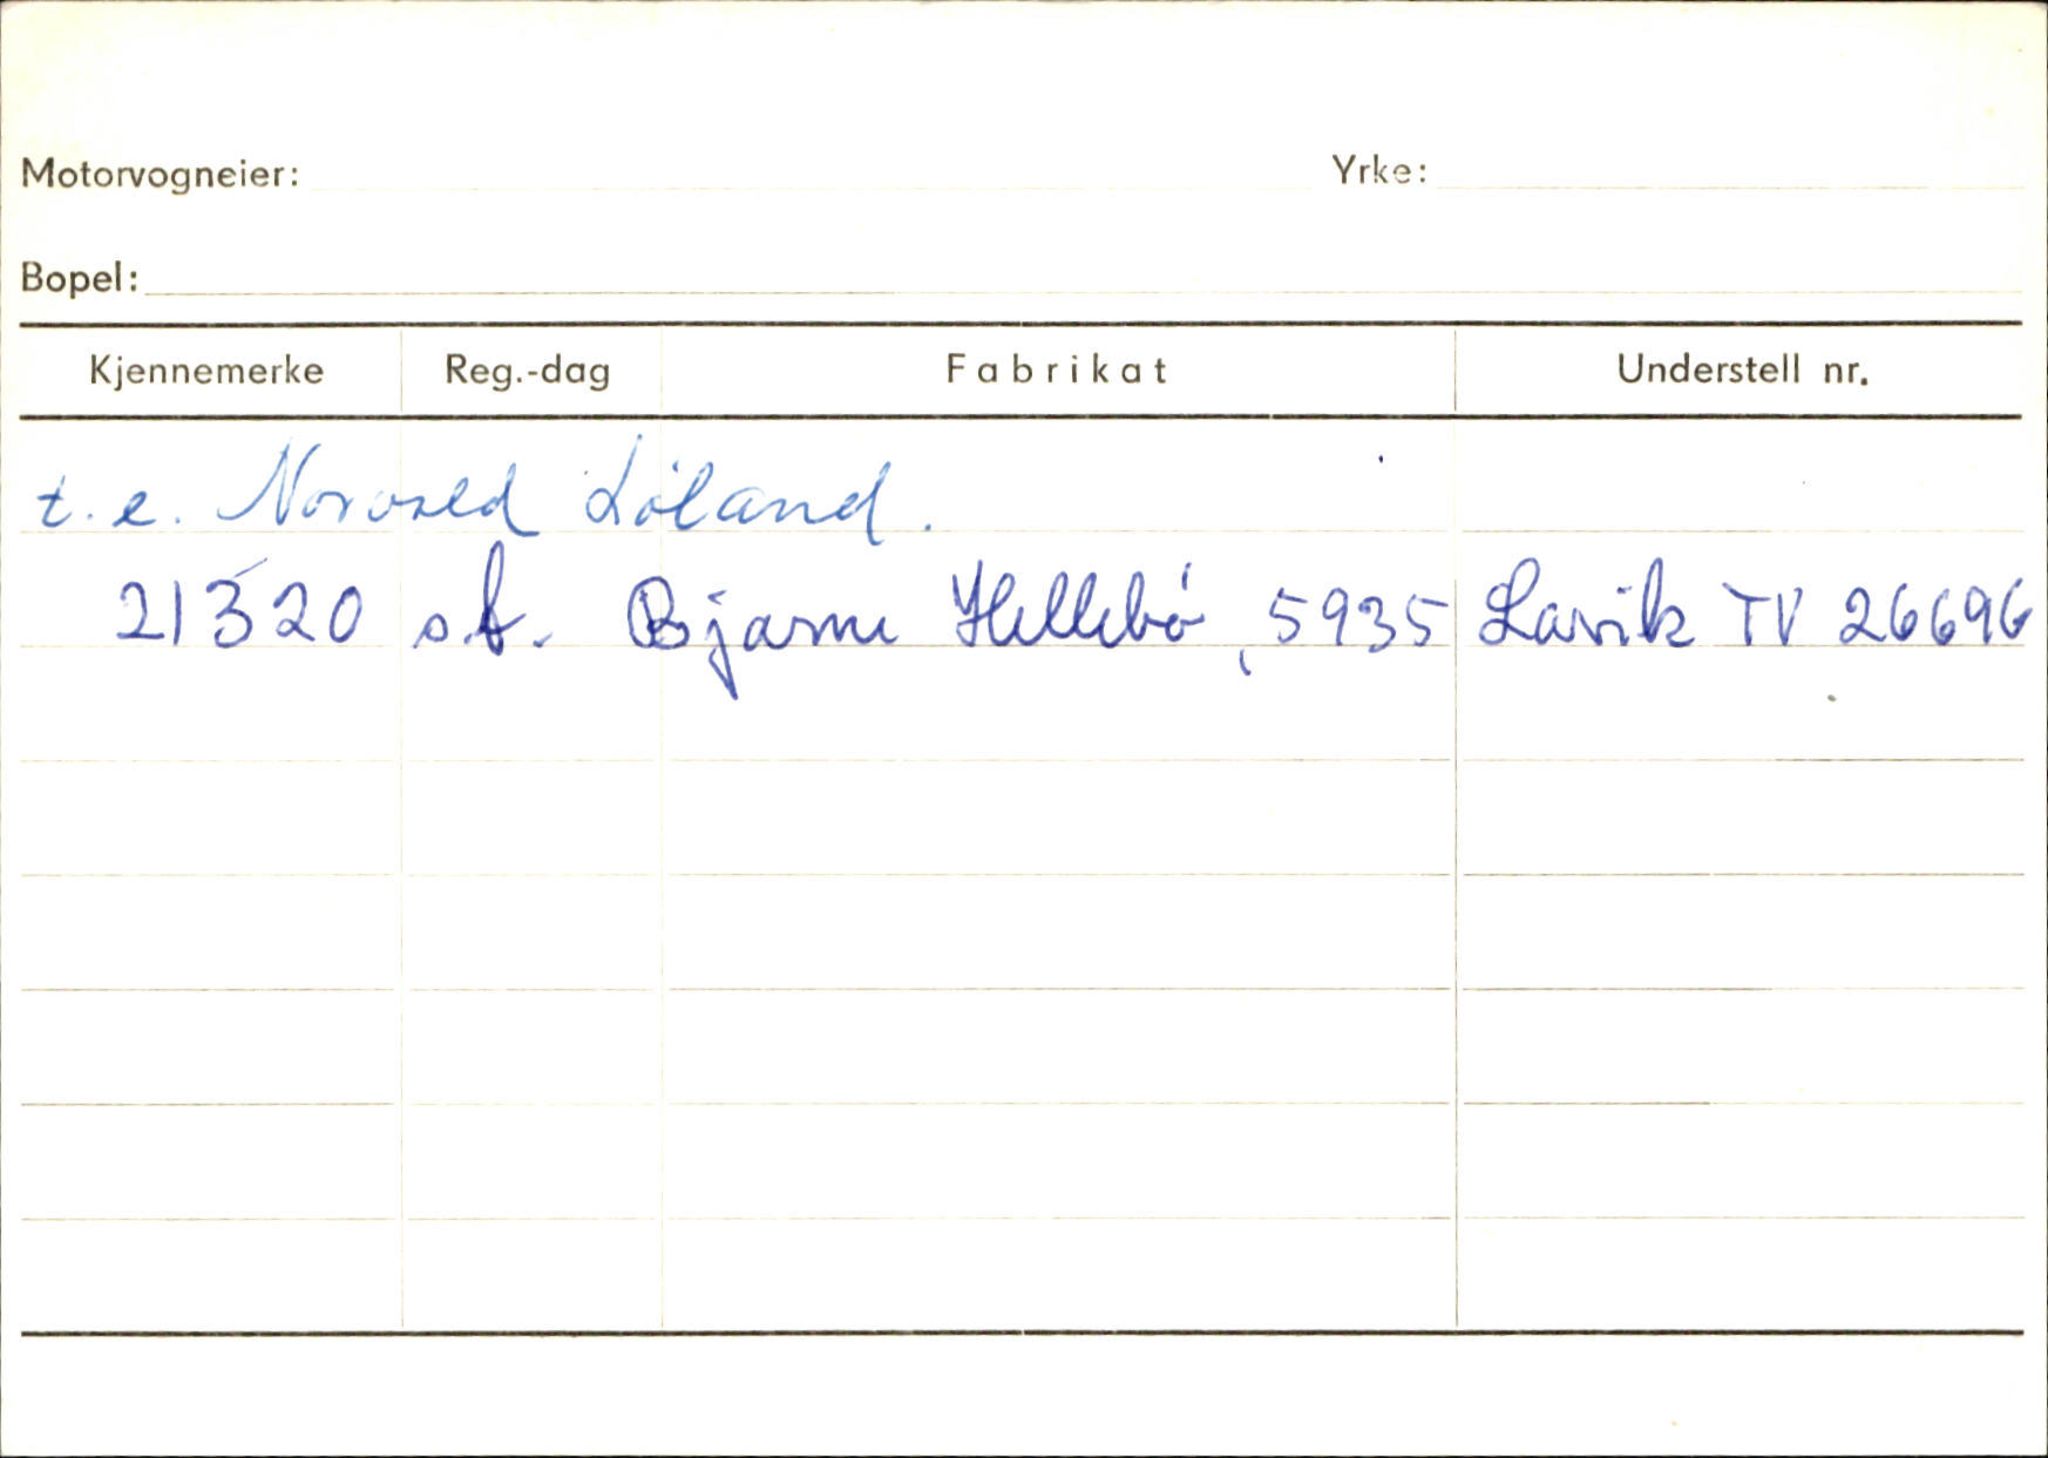 Motorvogneier: Yrke:
Bopel:
Kjennemerke Reg.-dag Fabrikat Understell nr.
t.e. Norvald Løland.
21320 s.f. Bjarne Hellebø, 5935 Lavik TV 26696